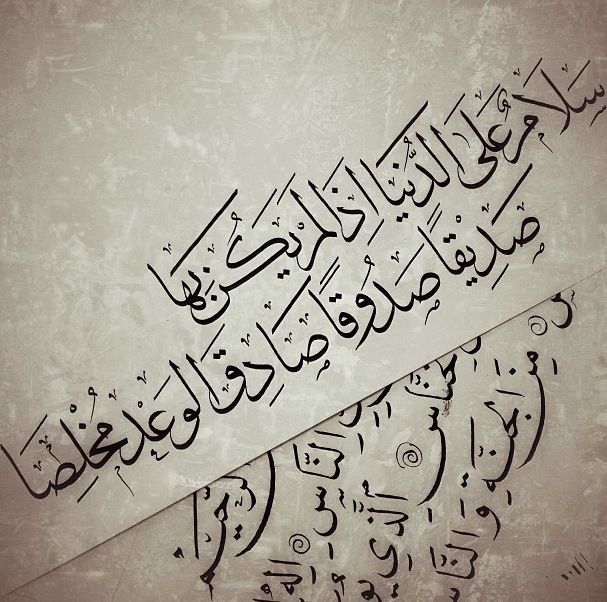 سَلَامٌ عَلَى الدُّنْيَا إِذَا لَمْ يَكُنْ بِهَا
صَدِيْقًا صَدُوْقًا صَادِقَ الوَعْدِ مُخْلِصَا
النَّاسِ
الَّذِي
مِنَ الجِنَّةِ وَالنَّاسِ